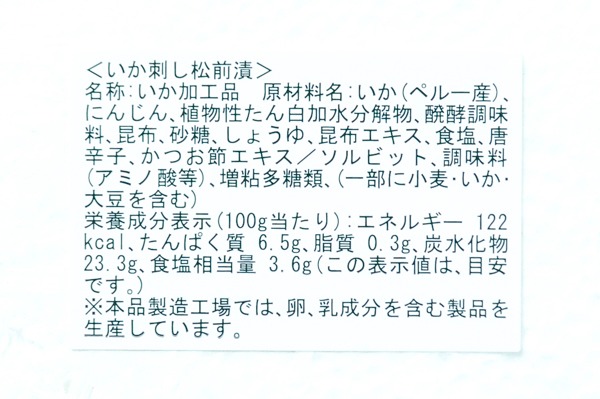 ＜いか刺し松前漬＞
名称：いか加工品　原材料名：いか（ペルー産）、
にんじん、植物性たん白加水分解物、醗酵調味
料、昆布、砂糖、しょうゆ、昆布エキス、食塩、唐
辛子、かつお節エキス／ソルビット、調味料
（アミノ酸等）、増粘多糖類、（一部に小麦・いか・
大豆を含む）
栄養成分表示（100g当たり）：エネルギー 122
kcal、たんぱく質 6.5g、脂質 0.3g、炭水化物
23.3g、食塩相当量 3.6g（この表示値は、目安
です。）
※本品製造工場では、卵、乳成分を含む製品を
生産しています。